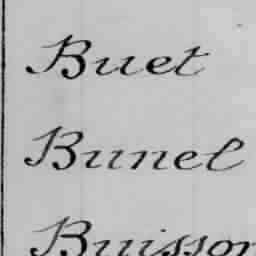 Buet
Bunel
Buisson